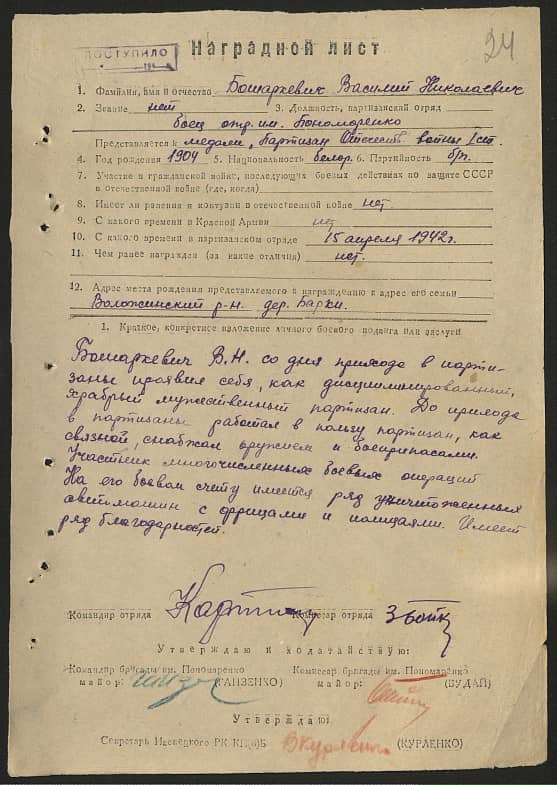 ПОСТУПИЛО
24
Наградной лист
1. Фамилия, имя и отчество Бошаркевич Василий Николаевич
2. Звание нет 3. Должность, партизанский отряд
боец отр. им. Пономоренко
Представляется к медали „Партизан Отечеств. войны I ст.
4. Год рождения 1904 5. Национальность белор. 6. Партийность б/п.
7. Участие в гражданской войне, последующих боевых действиях по защите СССР
в отечественной войне (где, когда)
8. Имеет ли ранения и контузии в отечественной войне нет.
9. С какого времени в Красной Армии нет
10. С какого времени в партизанском отряде 15 апреля 1942 г.
11. Чем ранее награжден (за какие отличия) нет.
12. Адрес места рождения представляемого к награждению и адрес его семьи
Воложинский р-н. дер. Барки.
1. Краткое, конкретное изложение личного боевого подвига или заслуги
Бошаркевич В.Н. со дня прихода в парти-
заны проявил себя, как дисциплинированный,
храбрый мужественный партизан. До прихода
в партизаны работал в пользу партизан, как
связной, снабжал оружием и боеприпасами.
Участник многочисленных боевых операций
На его боевом счету имеется ряд уничтоженных
автомашин с фрицами и полицаями. Имеет
ряд благодарностей.
Командир отряда Комиссар отряда
Утверждаю и ходатайствую:
Командир бригады им. Пономаренко Комиссар бригады им. Пономаренко
майор: (ГАНЗЕНКО) майор: (БУДАЙ)
Утверждаю:
Секретарь Ивенецкого РК КП(б)Б (КУРЛЕНКО)